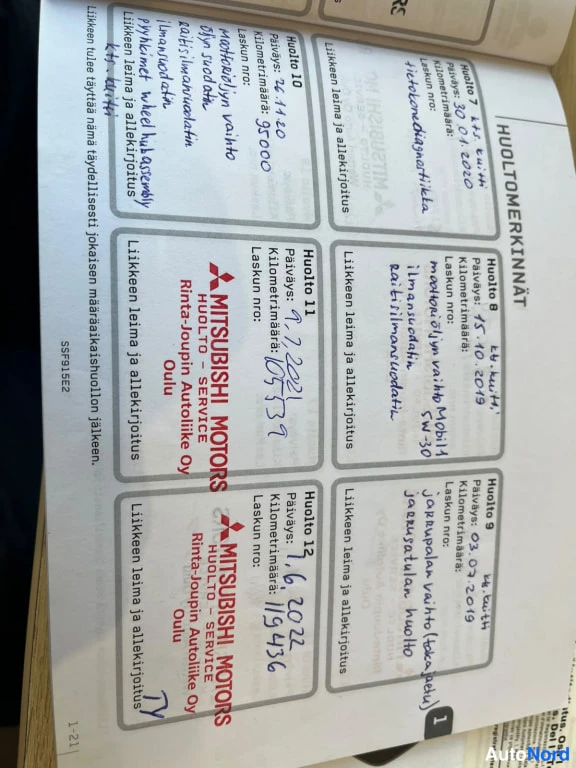 HUOLTOMERKINNÄT
Huolto 7 kts kuitti
Päiväys: 30.01.2020
Kilometrimäärä:
Laskun nro:
tietokonediagnostiikka
Liikkeen leima ja allekirjoitus
Huolto 8 kts. kuitti
Päiväys: 15.10.2019
Kilometrimäärä:
Laskun nro:
moottoriöljyn vaihto Mobil 1
5W-30
ilmansuodatin
raitisilmansuodatin
Liikkeen leima ja allekirjoitus
Huolto 9 kts. kuitti
Päiväys: 03.07.2019
Kilometrimäärä:
Laskun nro:
jarrupalan vaihto (taka ja etu)
jarrusatulan huolto
Liikkeen leima ja allekirjoitus
1
Huolto 10
Päiväys: 26.11.20
Kilometrimäärä: 95000
Laskun nro:
Moottoriöljyn vaihto
öljyn suodatin
raitisilmansuodatin
ilmansuodatin
Liikkeen leima ja allekirjoitus
pyyhkimet wheel hub assembly
kts. kuitti
Huolto 11
Päiväys: 9.7.2021
Kilometrimäärä: 105539
Laskun nro:
MITSUBISHI MOTORS
HUOLTO - SERVICE
Rinta-Joupin Autoliike Oy
Oulu
Liikkeen leima ja allekirjoitus
Huolto 12
Päiväys: 1.6.2022
Kilometrimäärä: 119436
Laskun nro:
MITSUBISHI MOTORS
HUOLTO - SERVICE
Rinta-Joupin Autoliike Oy
Oulu
Liikkeen leima ja allekirjoitus TY
Liikkeen tulee täyttää nämä täydellisesti jokaisen määräaikaishuollon jälkeen.
SSF915E2
1-21
AutoNord